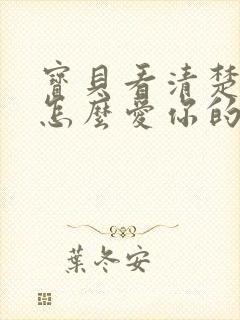 寶貝看清楚
怎麼愛你的
葉冬安